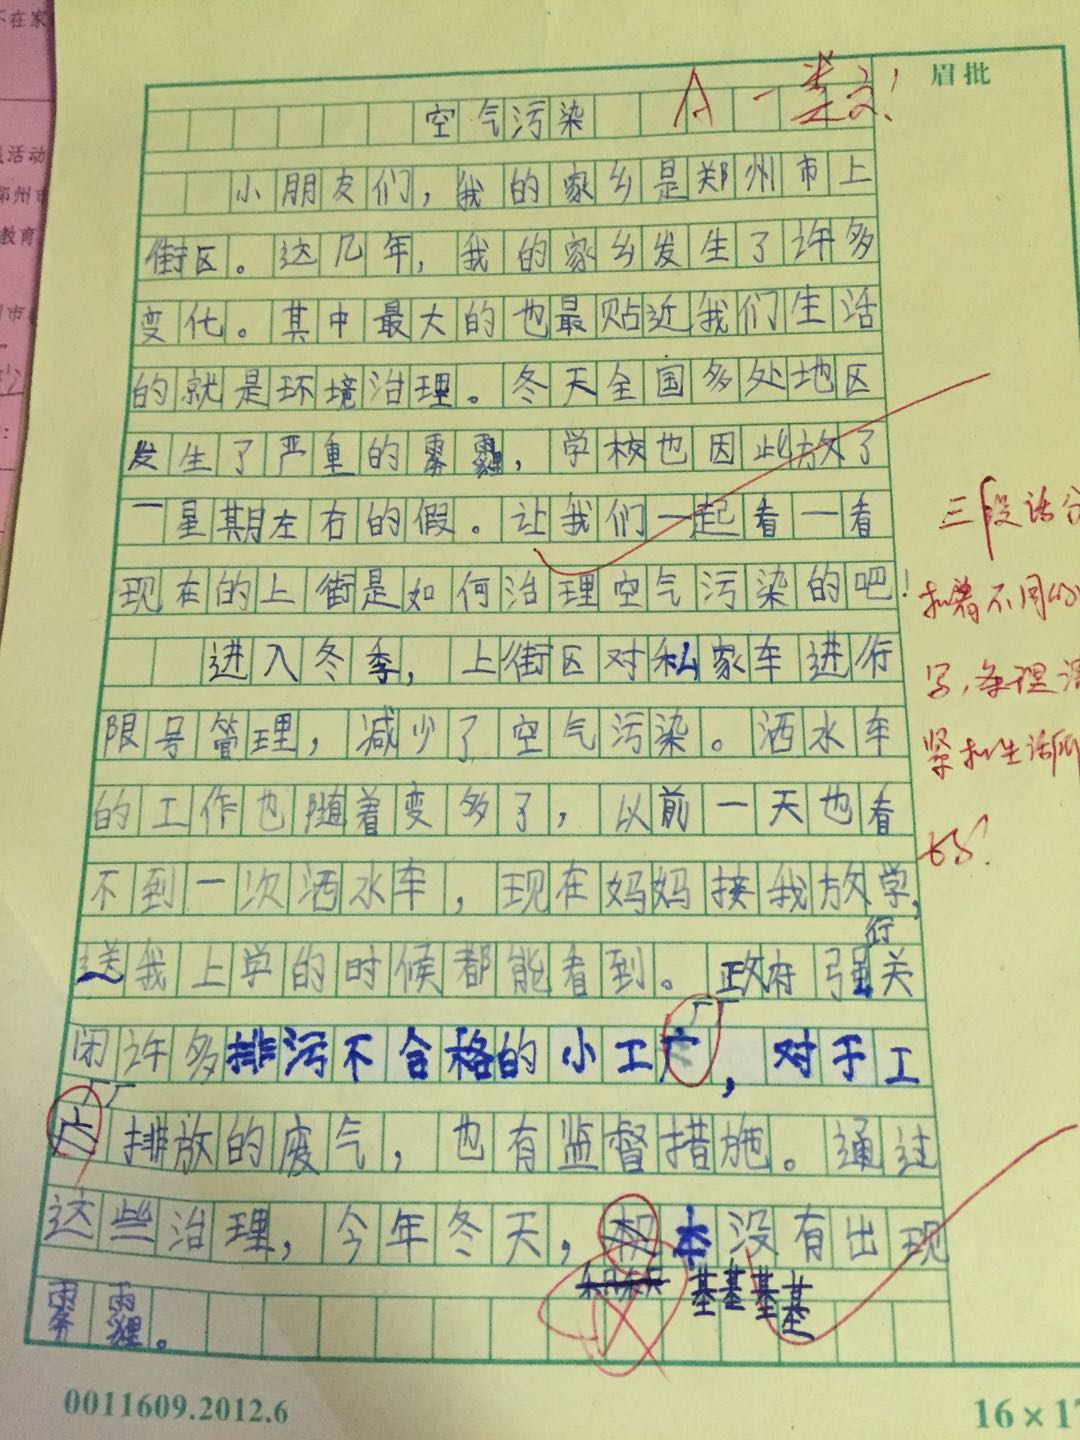 不在家
活动
郑州市
教育
市
眉批
A 一类文!
空气污染
小朋友们，我的家乡是郑州市上
街区。这几年，我的家乡发生了许多
变化。其中最大的也最贴近我们生活
的就是环境治理。冬天全国多处地区
发生了严重的雾霾，学校也因此放了
一星期左右的假。让我们一起看一看
现在的上街是如何治理空气污染的吧！
进入冬季，上街区对私家车进行
限号管理，减少了空气污染。洒水车
的工作也随着变多了，以前一天也看
不到一次洒水车，现在妈妈接我放学，
送我上学的时候都能看到。政府强行关
闭许多排污不合格的小工厂，对于工
厂排放的废气，也有监督措施。通过
这些治理，今年冬天，本没有出现
基基基基
雾霾。
三段话分
扣着不同的
写，条理清
紧扣生活所
0011609.2012.6
16×17